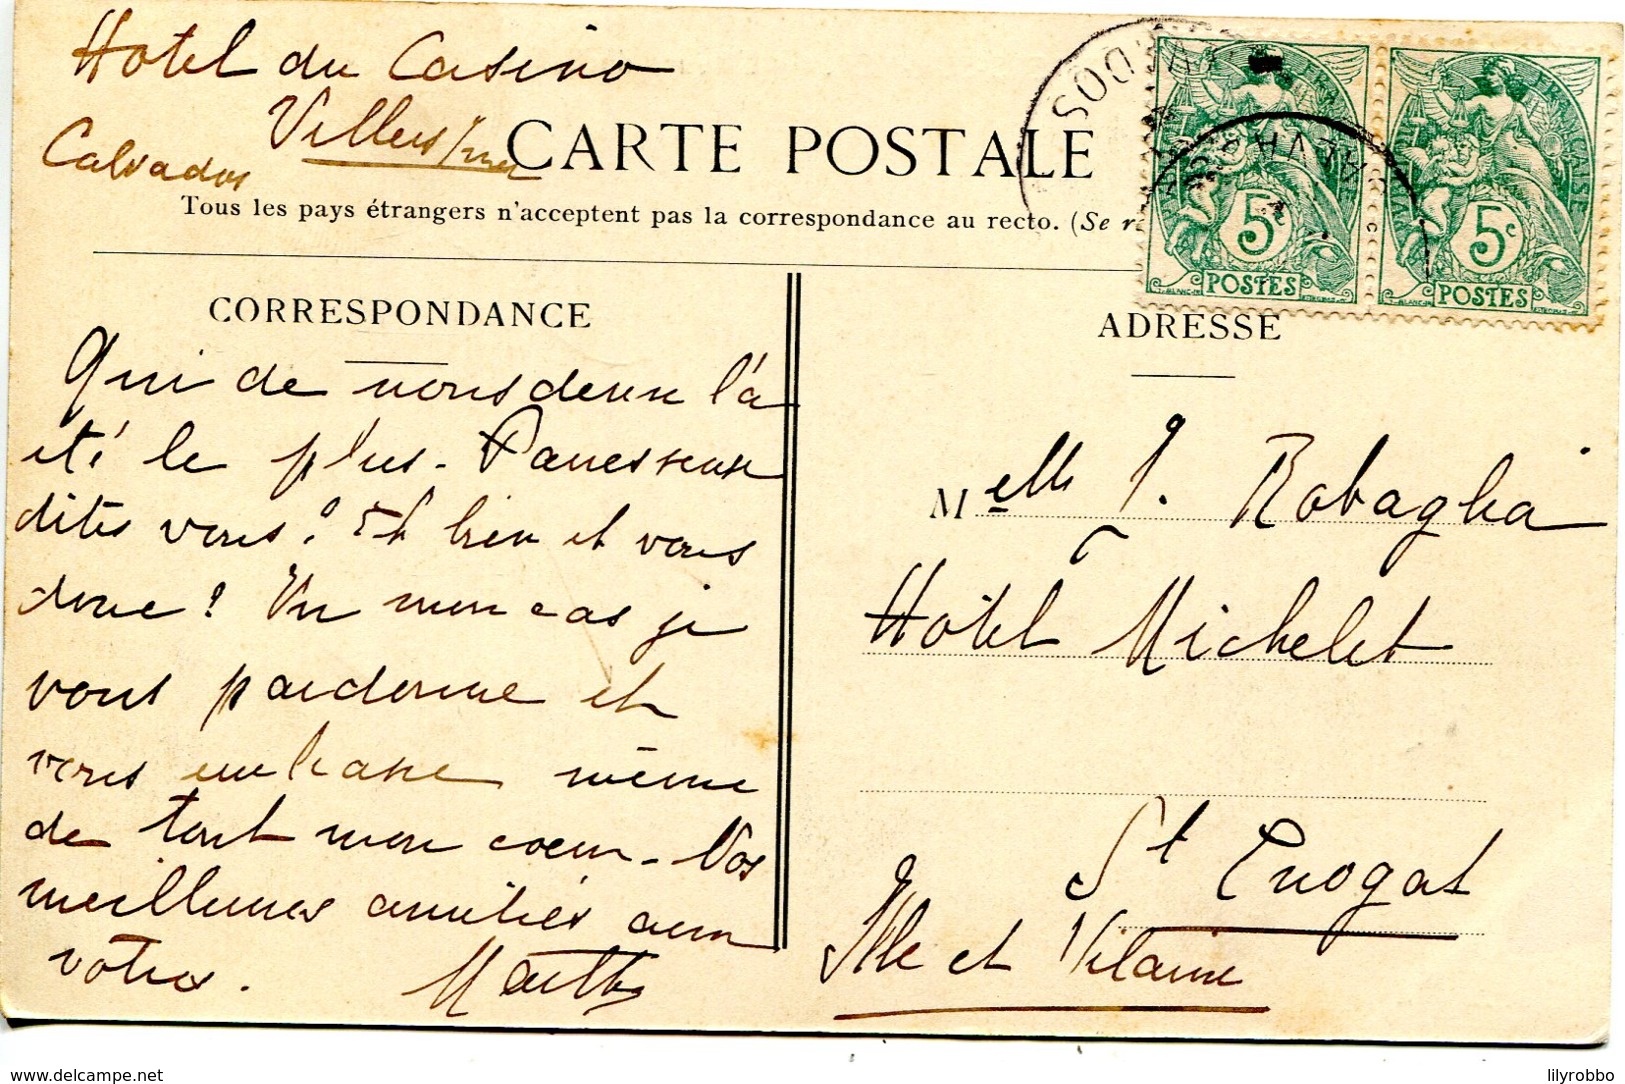 Hotel du Casino
Villers s/mer
Calvados
CARTE POSTALE
Tous les pays étrangers n'acceptent pas la correspondance au recto. (Se r
CALVADOS
FRANÇAISE
5c
POSTES
5c
POSTES
CORRESPONDANCE
Qui de nous deux l'a
été le plus - Paresseuse
dites vous? Et bien et vous
donc? En mon cas je
vous pardonne et
vous embrasse même
de tout mon coeur - Vos
meilleures amitiés aux
votres. Marthe
ADRESSE
Melle J. Robaglia
Hôtel Michelet
St Enogat
Ille et Vilaine
delcampe.net
lilyrobbo